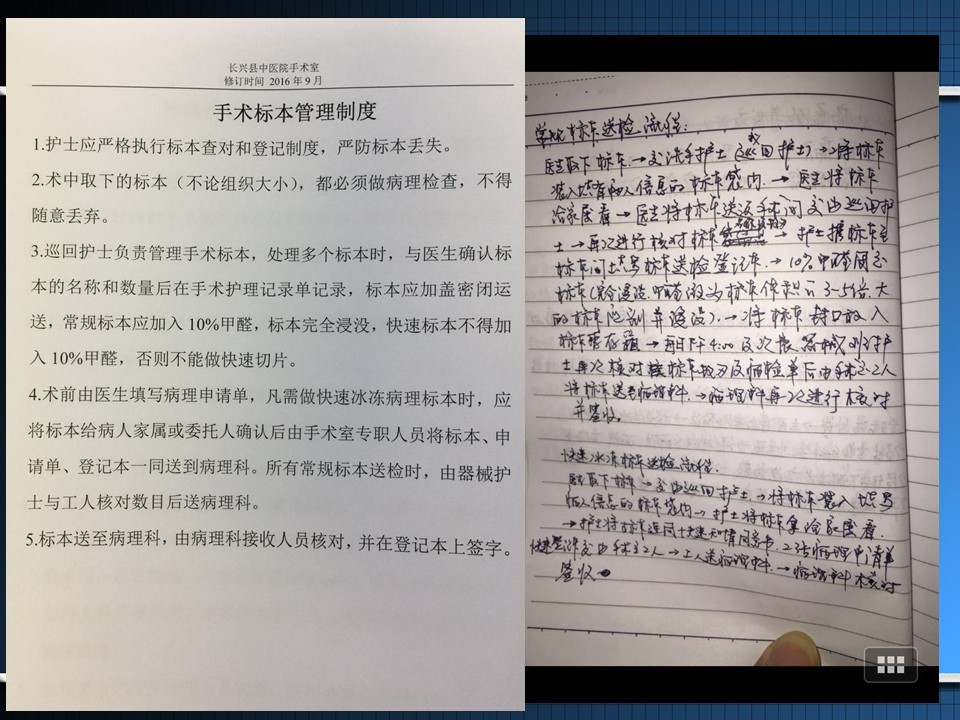 长兴县中医院手术室
修订时间 2016 年 9 月
手术标本管理制度
1.护士应严格执行标本查对和登记制度，严防标本丢失。
2.术中取下的标本（不论组织大小），都必须做病理检查，不得
随意丢弃。
3.巡回护士负责管理手术标本，处理多个标本时，与医生确认标
本的名称和数量后在手术护理记录单记录，标本应加盖密闭运
送，常规标本应加入 10%甲醛，标本完全浸没，快速标本不得加
入 10%甲醛，否则不能做快速切片。
4.术前由医生填写病理申请单，凡需做快速冰冻病理标本时，应
将标本给病人家属或委托人确认后由手术室专职人员将标本、申
请单、登记本一同送到病理科。所有常规标本送检时，由器械护
士与工人核对数目后送病理科。
5.标本送至病理科，由病理科接收人员核对，并在登记本上签字。
常规标本送检流程：
医生取下标本→交洗手护士（或巡回护士）→将标本
装入填有病人信息的标本袋内→医生将标本
给家属看→医生将标本送返手术间交由巡回护
士→再次进行核对标本→护士携标本至
标本间填写标本送检登记本→10%甲醛固定
标本（完全浸没，甲醛液为标本体积的3-5倍，大
的标本）→将标本封口放入
标本→每日下午4:00
士再次核对标本及病检单后由手术室工人
将标本送至病理科→病理科再次进行核对
并签收。
快速冰冻标本送检流程：
医生取下标本→交由巡回护士→将标本装入填写
病人信息的标本袋内→护士将标本拿给家属看
→护士将标本连同快速知情同意书、2张病理申请单
交由手术室工人→工人送病理科→病理科核对
签收